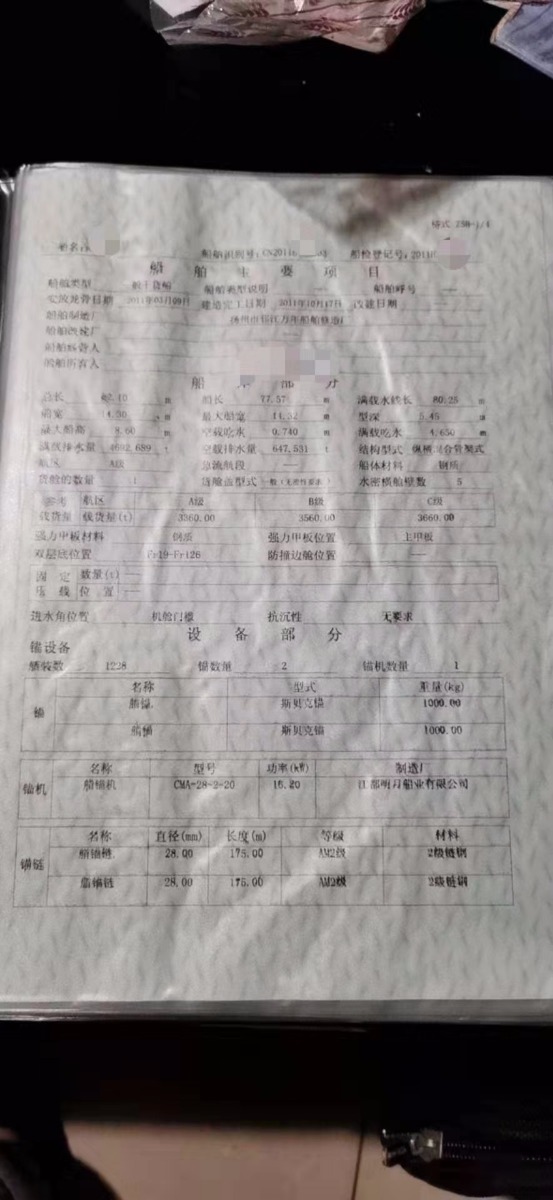 格式 ZSB-1/4
船名: 船舶识别号: CN2011 号 船检登记号: 2011
船 舶 主 要 项 目
船舶类型 一般干货船 船舶类型说明 —— 船舶呼号 ——
安放龙骨日期 2011年03月09日 建造完工日期 2011年10月17日 改建日期 ——
船舶制造厂
船舶改建厂 ——
船舶经营人
船舶所有人
船 部 分
总长 m 船长 77.57 m 满载水线长 80.25 m
船宽 m 最大船宽 m 型深 5.45 m
最大船高 8.60 m 空载吃水 0.740 m 满载吃水 4.650 m
满载排水量 4692.689 t 空载排水量 647.531 t 结构型式 纵横混合骨架式
航区 A级 急流航段 —— 船体材料 钢质
货舱的数量 1 货舱盖型式 水密横舱壁数 5
参考 航区 A级 B级 C级
载货量 载货量(t) 3560.00 3660.00
强力甲板材料 钢质 强力甲板位置 上甲板
双层底位置 Fr19-Fr126 防撞边舱位置 ——
固 定 数量(t) ——
压 载 位 置 ——
进水角位置 机舱门槛 抗沉性 无要求
设 备 部 分
锚设备
舾装数 1228 锚数量 2 锚机数量 1
名称 型式 重量(kg)
锚 艏锚 斯贝克锚 1000.00
艏锚 斯贝克锚 1000.00
名称 型号 功率(kW) 制造厂
锚机 艏锚机 CMA-28-2-20 江都明月船业有限公司
名称 直径(mm) 长度(m) 等级 材料
锚链 艏锚链 28.00 175.00 AM2级 2级链钢
艏锚链 28.00 175.00 AM2级 2级链钢